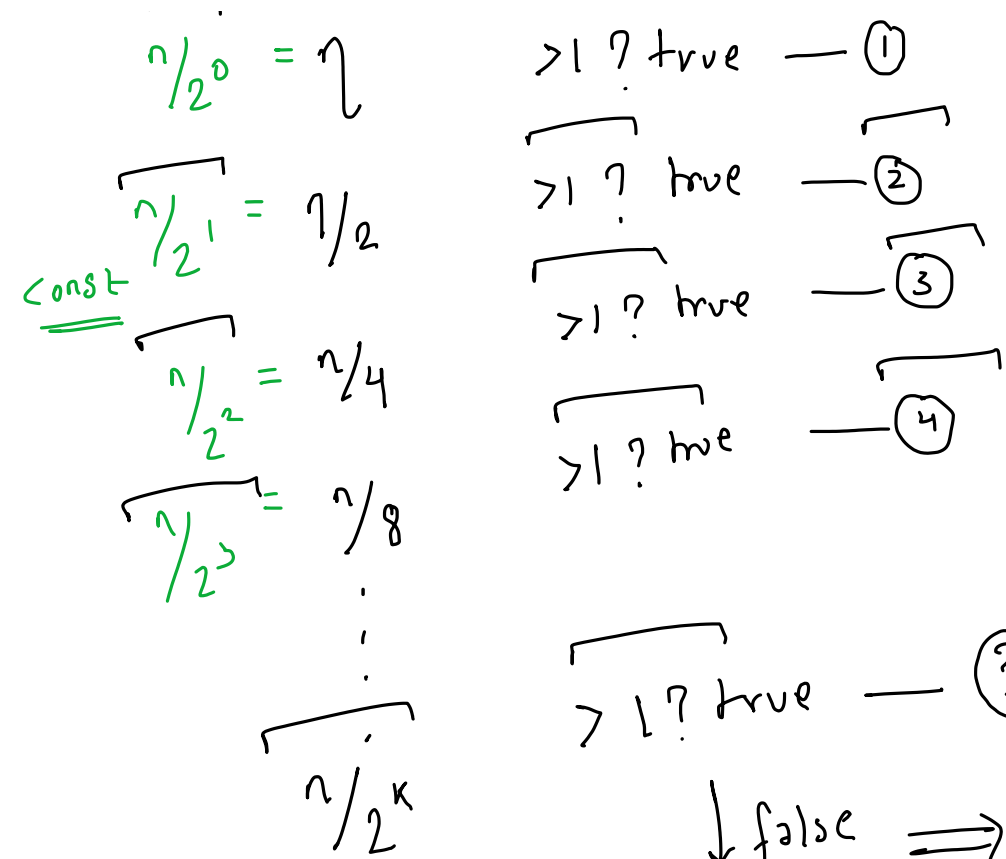 n/2^0 = n >1 ? true — ①
n/2^1 = n/2 >1 ? true — ②
const
n/2^2 = n/4 >1 ? true — ③
n/2^3 = n/8 >1 ? true — ④
n/2^k >1 ? true — ?
↓ false ⇒